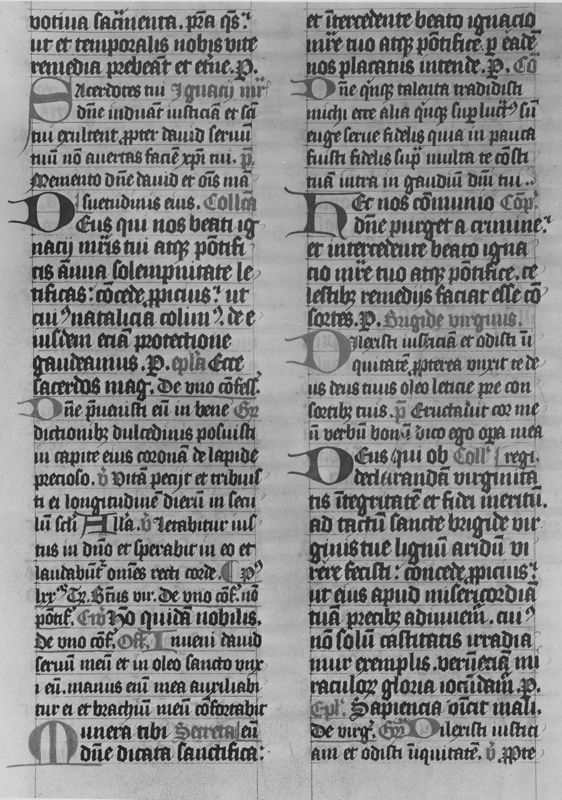 votiua sacr̄menta. p̄sta q̄s.
ut et temporalis nobis vite
remedia prebeāt et et̄ne. P.
Sacerdotes tui Ignacij mr̄
dn̄e induāt iusticiā et sc̄i
tui exultent, ꝓpter dauid seruū
tuū nō auertas faciē xp̄i tui. p̄.
Memento dn̄e dauid et oīs mā
suetudinis eius. Collc̄a
Deus qui nos beati ig
nacij mr̄is tui atqꝫ pōtifi
tis ānua solempnitate le
tificas: cōcede ꝓpicius. ut
cuiꝰ natalicia colimꝰ. de e
iusdem eciā protectione
gaudeamus. P. ep̄la Ecce
sacerdos mag. De vno cōfess.
Dn̄e p̄uenisti eū in bene Gr̄
dictionibꝫ dulcedinis posuisti
in capite eius coronā de lapide
precioso. v̄ Vitā pecijt et tribuis
ti ei longitudinē dierū in secu
lū sc̄li All̄a. v̄ Letabitur ius
tus in dn̄o et sperabit in eo et
laudabūt̄ om̄es recti corde. Pꝰ
lxx. Tr̄. Bn̄tus vir. De vno cōf. nō
pōtif. Ew̄ Ho quidā nobilis.
De vno cōf. Off. Inueni dauid
seruū meū et in oleo sancto vnx
i eū. manus enī mea auxiliabi
tur ei et brachiū meū cōfortabit
Munera tibi Secreta eū
dn̄e dicata sanctifica:
et ītercedente beato ignacio
mr̄e tuo atqꝫ pōtifice. p eādē
nos placatus intende. P. Cō
Dn̄e qīqꝫ talenta tradidisti
michi ecce alia qīqꝫ supluctꝰ sū
euge serue fidelis quia in pauca
fuisti fidelis sup̄ multa te cōsti
tuā intra in gaudiū dn̄i tui.
Et nos cōmunio Cōp̄.
Hdn̄e purget a crimine.
et intercedente beato igna
cio mr̄e tuo atqꝫ pōtifice. ce
lestibꝫ remedijs faciat esse cō
sortes. P. Brigide virginis.
Dilexisti iusticiā et odisti ī
quitatē. ꝓpterea vnxit te de
us deus tuus oleo leticie pre con
sortibꝫ tuis. p̄ Eructauit cor me
ū verbū bonū dico ego opa mea
Deus qui ob Coll̄ regi.
declarandam virginita
tis ītegritatē et fidei meritū.
ad tactū sancte brigide vir
ginis tue lignū aridū vi
rere fecisti: concede ꝓpicius.
ut eius apud misericordiā
tuā precibꝫ adiuuem̄. cuiꝰ
nō solū castitatis irradia
mur exemplis. verū eciā mi
raculorꝝ gloria iocūdam̄. P.
Epl̄. Sapiencia vīcit mali.
De virg. Gr̄ Dilexisti iustici
am et odisti īiquitatē. v̄. ꝓpte